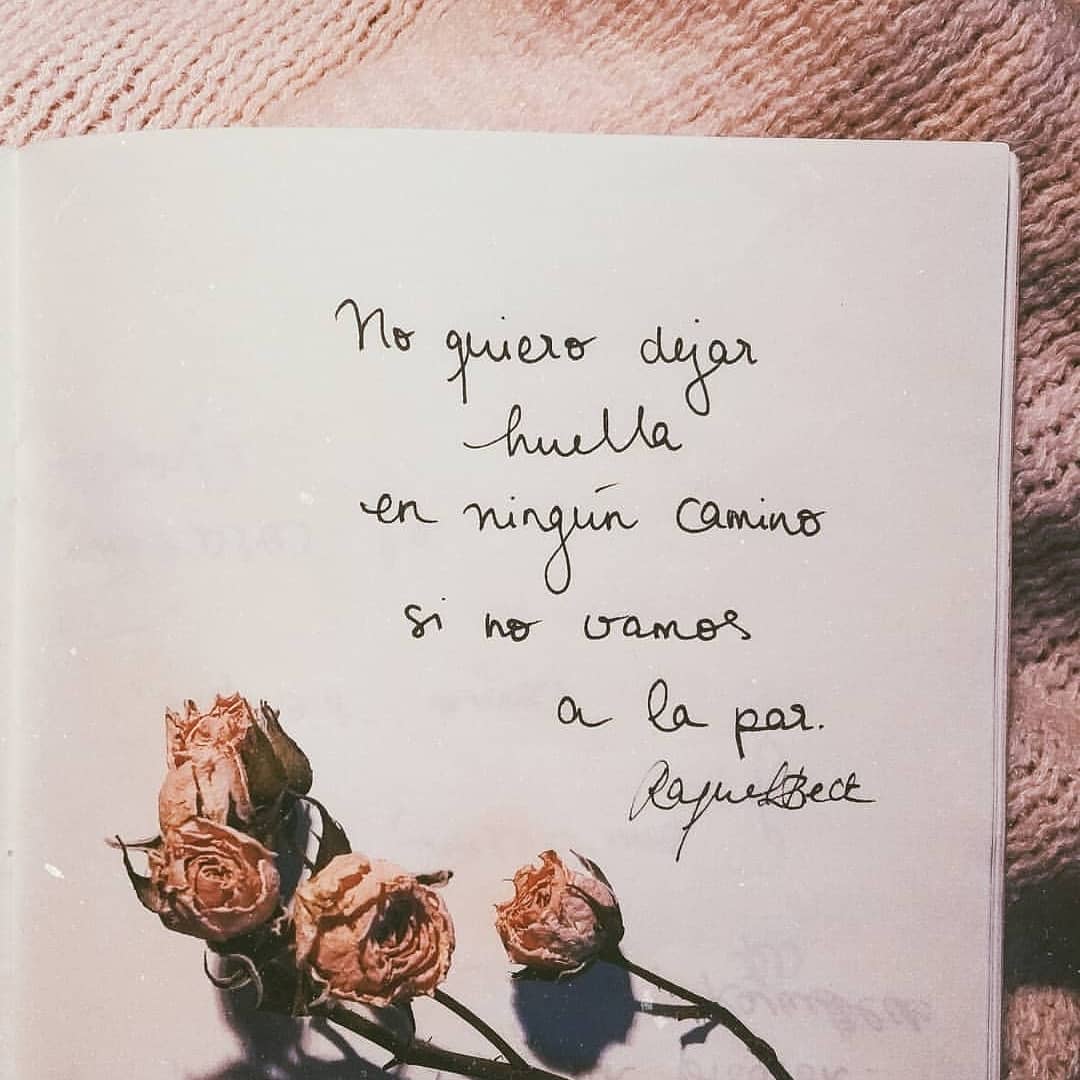 No quiero dejar
huella
en ningún camino
si no vamos
a la par.
Raquel Beck